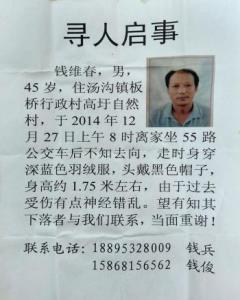 寻人启事
钱维春，男，
45岁，住汤沟镇板
桥行政村高圩自然
村，于2014年12
月27日上午8时离家坐55路
公交车后不知去向，走时身穿
深蓝色羽绒服，头戴黑色帽子，
身高约1.75米左右，由于过去
受伤有点神经错乱。望有知其
下落者与我们联系，当面重谢！
联系电话：18895328009 钱兵
15868156562 钱俊